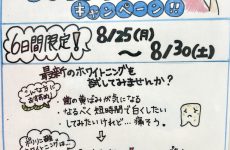 キャンペーン!!
6日間限定!
8/25(月)
〜8/30(土)
最新のホワイトニングを
試してみませんか?
こんな方に
おすすめ
・歯の黄ばみが気になる
・なるべく短時間で白くしたい
・してみたいけれど…痛そう。
ホワイトニングは